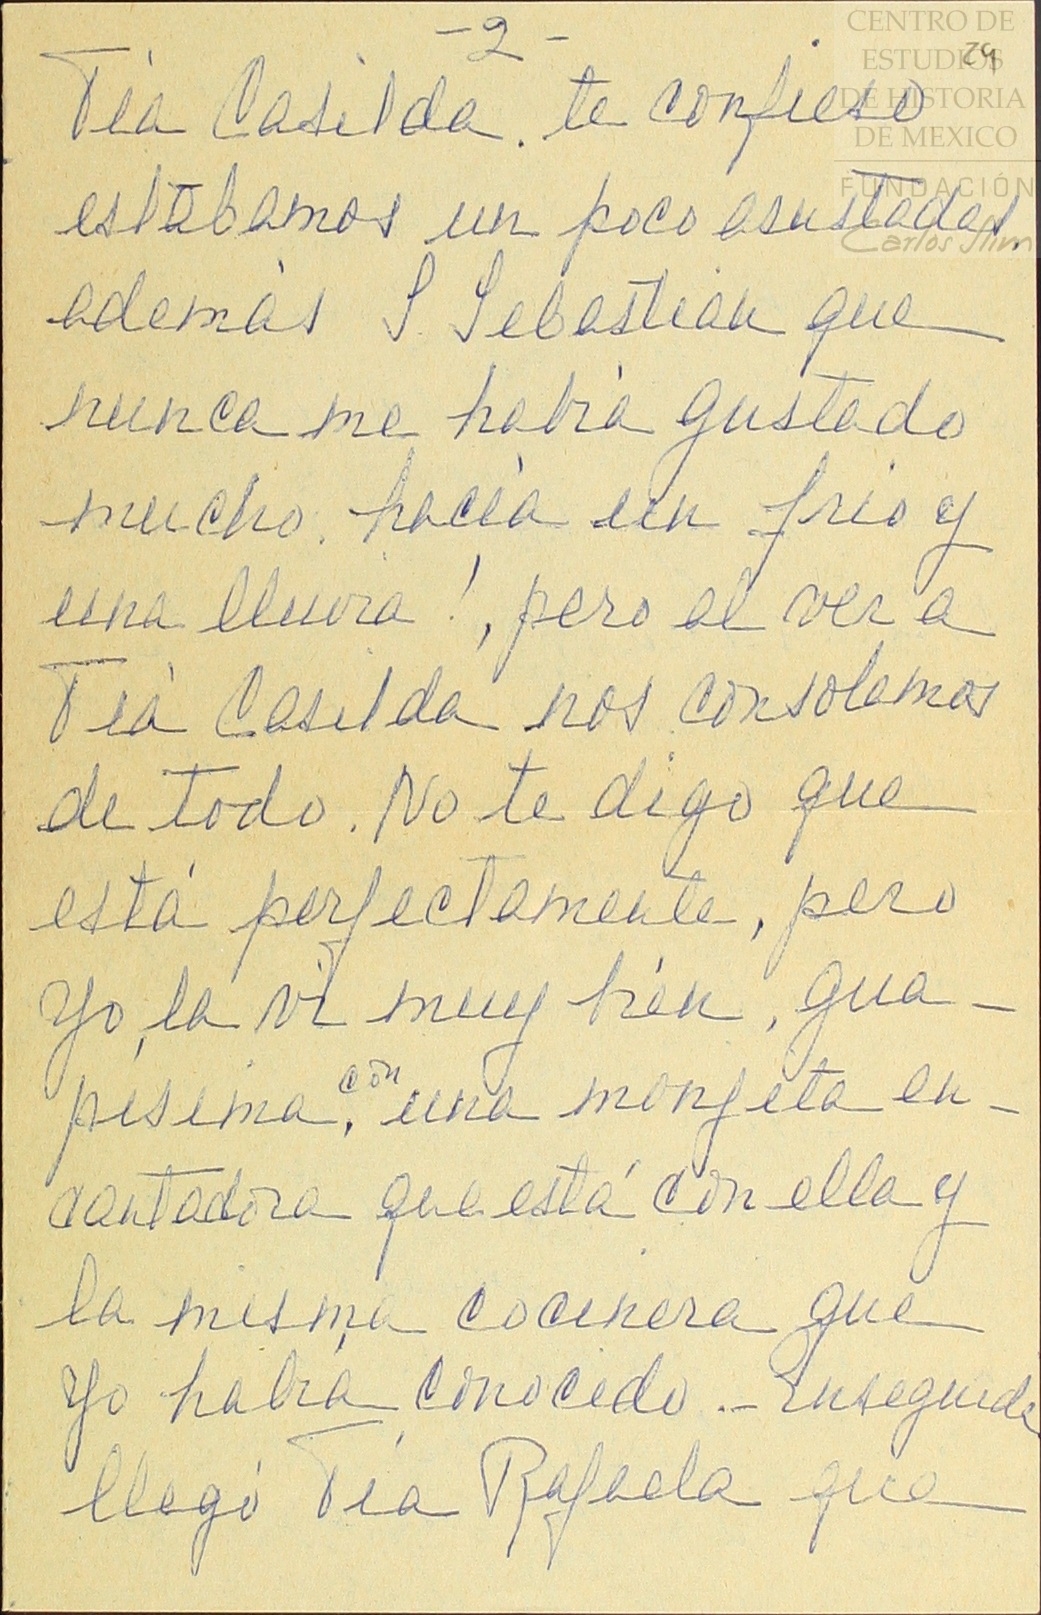 -2-
CENTRO DE
ESTUDIOS
DE HISTORIA
DE MEXICO
FUNDACIÓN
Carlos Slim
24
Tía Casilda. te confieso
estábamos un poco asustadas.
además S. Sebastian que
nunca me había gustado
mucho. hacía un frio y
una lluvia!, pero al ver a
Tía Casilda nos consolamos
de todo. No te digo que
está perfectamente, pero
yo, la ví muy bién, gua-
písima, con una monjita en-
cantadora que está con ella y
la misma cocinera que
yo había conocido.- Enseguida
llegó Tía Rafaela que